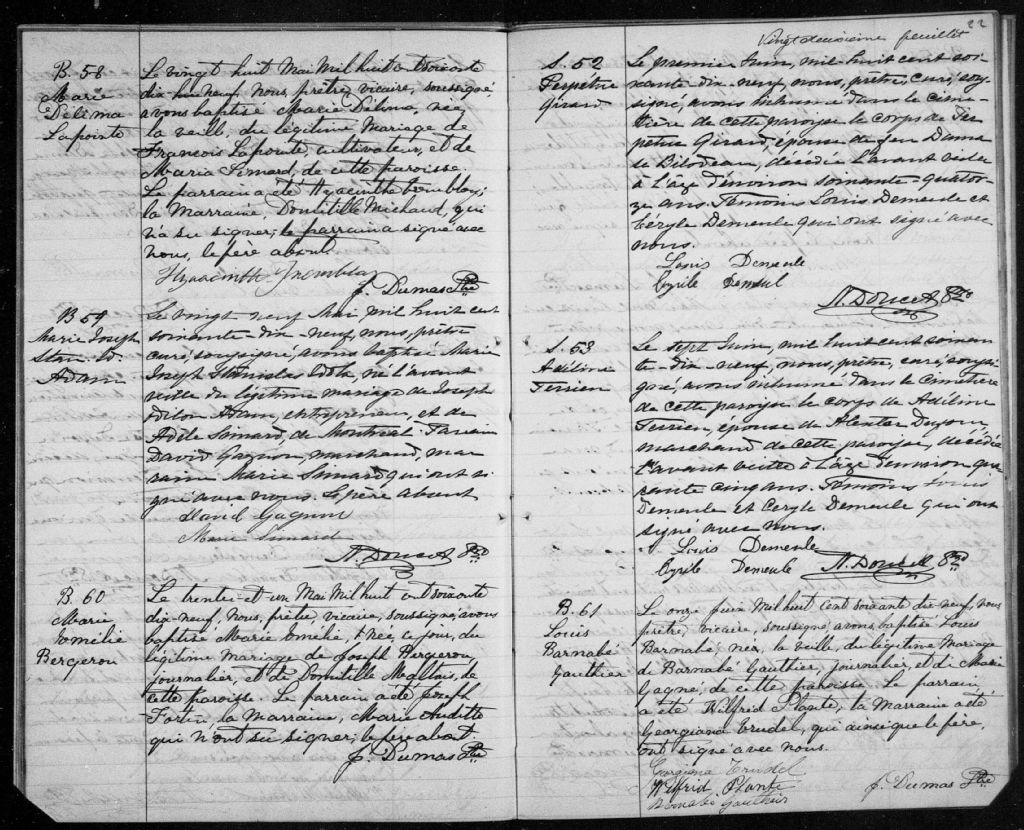 B. 58
Marie
Délima
Lapointe
Le vingt huit Mai Mil huit cent soixante
dix-neuf, Nous, prêtre, vicaire, soussigné
avons baptisé Marie Délima, née
la veille, du légitime Mariage de
Francois Lapointe, cultivateur, et de
Maria Simard, de cette paroisse.
Le parrain a été Hyacinthe Tremblay;
la Marraine, Domitille Michaud, qui
n'a su signer; le parrain a signé avec
nous, le père absent.
Hyacinth Tremblay
J. Dumas Ptre
B 59
Marie Joseph
Stan. Ed.
Adam
Le vingt neuf Mai, mil huit cent
soixante-dix-neuf, nous, prêtre
curé, soussigné, avons baptisé Marie
Joseph Stanislas, né l'avant
veille du légitime mariage de Joseph
Adam, entrepreneur, et de
Adèle Simard, de Montréal. Parrain
David Gagnon, marchand, mar
raine Marie Simard qui ont si
gné avec nous. Le père absent
David Gagnon
Marie Simard
N. Doucet Ptre
B. 60
Marie
Bergeron
Le trente et un Mai Mil huit cent soixante
dix-neuf, Nous, prêtre, vicaire, soussigné, avons
baptisé Marie, née, ce jour, du
légitime mariage de Joseph Bergeron,
journalier, et de Domitille, de
cette paroisse. Le parrain a été Joseph
Fortin, la Marraine, Marie Audette
qui n'ont su signer; le père absent.
J. Dumas Ptre
22
Vingt deuxième feuillet
S. 52
Perpétue
Girard
Le premier Juin, mil huit cent soi-
xante-dix-neuf, nous, prêtre, curé, sous
signé, avons inhumé dans le cime-
tière de cette paroisse le corps de Per
pétue Girard, épouse de feu Dama
se Bilodeau, décédée l'avant veille
à l'âge d'environ soixante-quator-
ze ans. Témoins Louis Demeule et
Céryle Demeule qui ont signé avec
nous.
Louis Demeule
Cyrile Demeul
N. Doucet Ptre
S. 53
Adéline
Terrien
Le sept Juin, mil huit cent soixan
te-dix-neuf, nous, prêtre, curé, soussi
gné, avons inhumé dans le cimetière
de cette paroisse le corps de Adéline
Terrien, épouse de
marchand de cette paroisse, décédée
l'avant veille à l'âge d'environ qua
rante cinq ans. Témoins Louis
Demeule et Ceryle Demeule qui ont
signé avec nous.
Louis Demeule
Cyrile Demeule
N. Doucet Ptre
B. 61
Louis
Barnabé
Gauthier
Le onze juin Mil huit cent soixante dix-neuf, nous
prêtre, vicaire, soussigné, avons baptisé Louis
Barnabé, né, la veille, du légitime Mariage
de Barnabé Gauthier, journalier, et de Marie
Gagné, de cette paroisse. Le parrain
a été Wilfrid Plante, la Marraine a été
Georgiana Trudel, qui ainsi que le père,
ont signé avec nous.
Georgiana Trudel
Wilfrid Plante
Barnabé Gauthier
J. Dumas Ptre